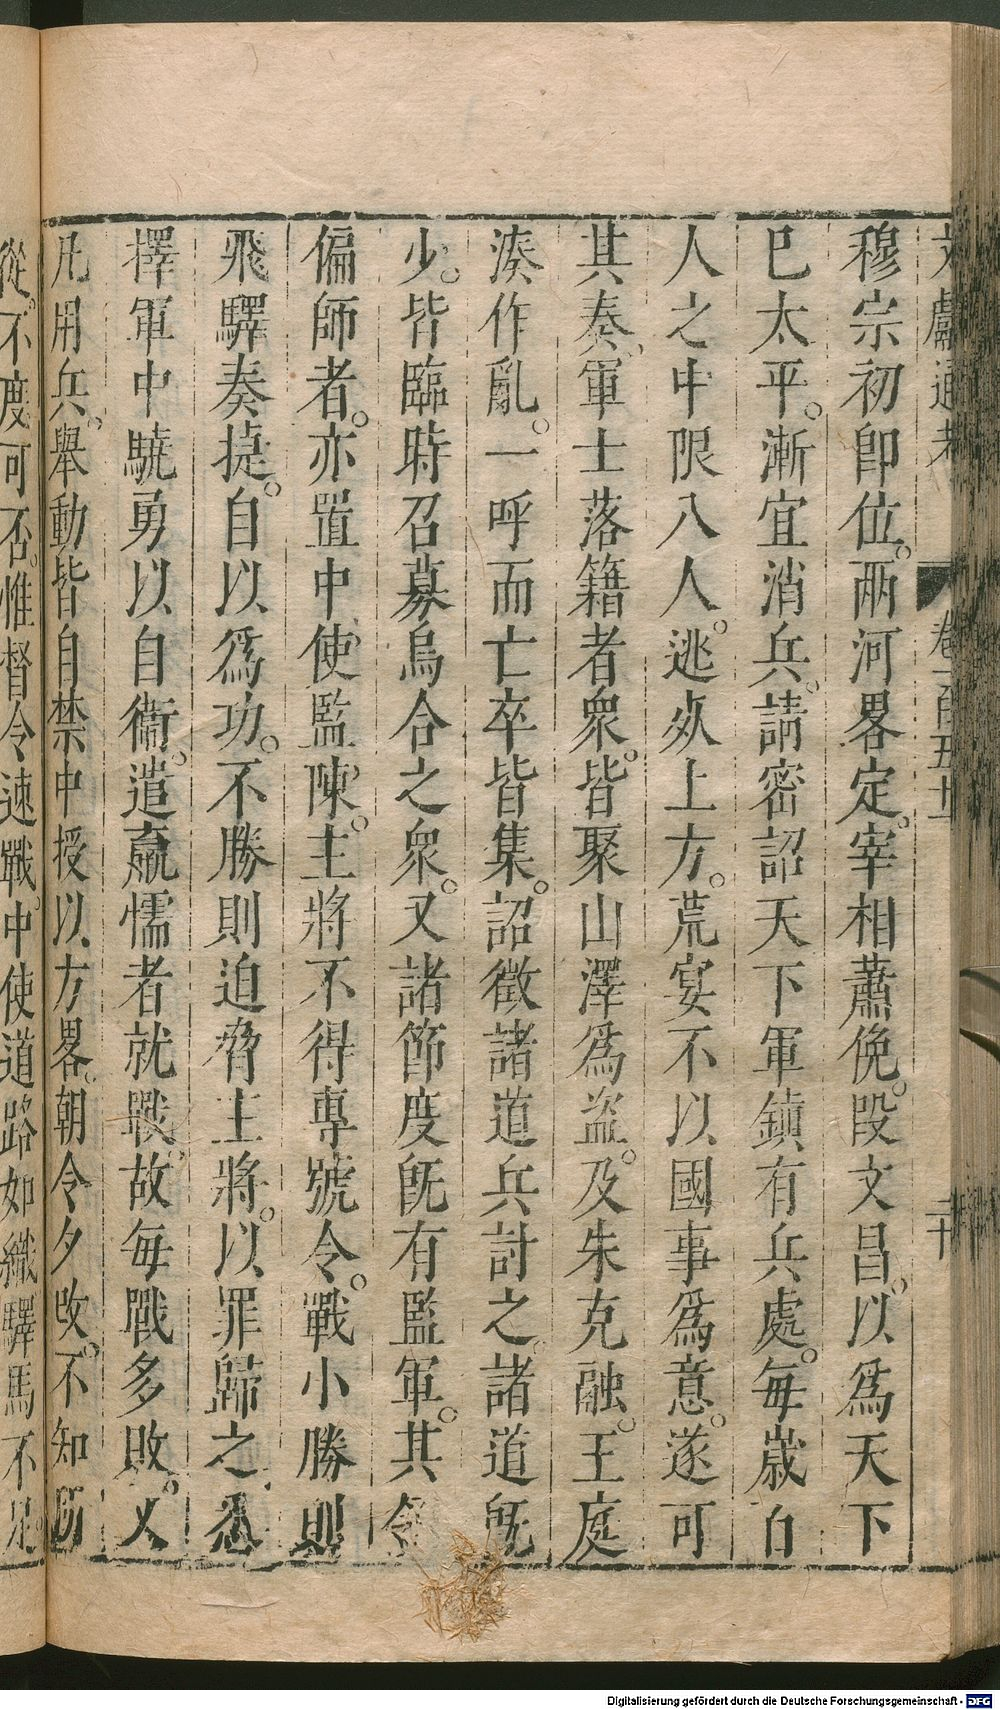 文獻通考　卷一百五十　二十
穆宗初卽位。兩河畧定。宰相蕭俛。段文昌。以爲天下
已太平。漸宜消兵。請密詔天下軍鎮有兵處。每歲百
人之中限八人。逃死上方。荒宴不以國事爲意。遂可
其奏。軍士落籍者衆。皆聚山澤爲盗。及朱克融。王庭
湊作亂。一呼而亡卒皆集。詔徵諸道兵討之。諸道旣
少。皆臨時召募烏合之衆。又諸節度旣有監軍。其領
偏師者。亦置中使監陳。主將不得專號令。戰小勝則
飛驛奏捷。自以爲功。不勝則迫脅主將。以罪歸之。悉
擇軍中驍勇以自衞。遣羸懦者就戰。故每戰多敗。又
凡用兵。舉動皆自禁中授以方畧。朝令夕改。不知所
從。不度可否。惟督令速戰。中使道路如織。驛馬不足。
Digitalisierung gefördert durch die Deutsche Forschungsgemeinschaft - DFG